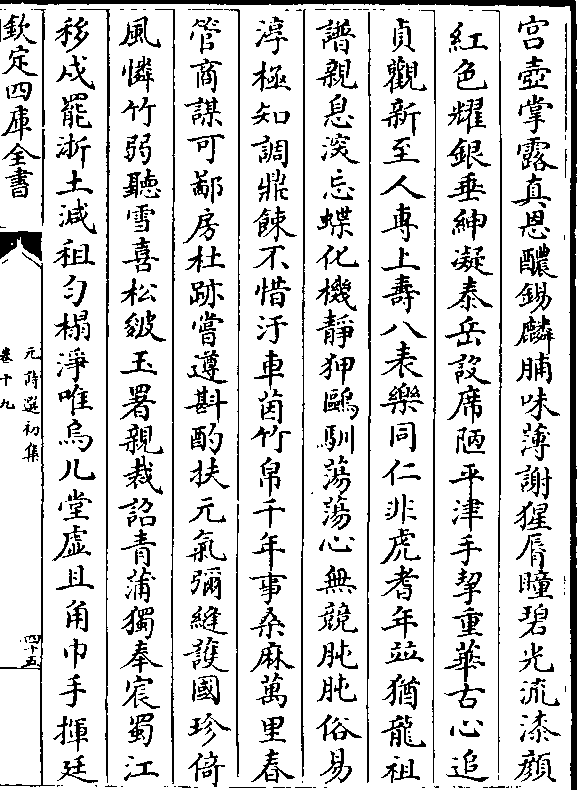 宫壺掌露真恩醲錫麟脯味薄謝猩脣瞳碧光流漆顔
紅色耀銀垂紳凝泰岳設席陋平津手挈重華古心追
貞觀新至人專上壽八表樂同仁非虎耆年並猶龍祖
譜親息深忘蝶化機靜狎鷗馴蕩蕩心無競肫肫俗易
淳極知調鼎餗不惜汙車茵竹帛千年事桑麻萬里春
管商謀可鄙房杜跡嘗遵斟酌扶元氣彌縫護國珍倚
風憐竹弱聽雪喜松皴玉署親裁詔青蒲獨奉宸蜀江
移戍罷浙土減租勻榻淨唯烏几堂虛且角巾手揮廷
欽定四庫全書
元詩選初集
卷十九
四十五